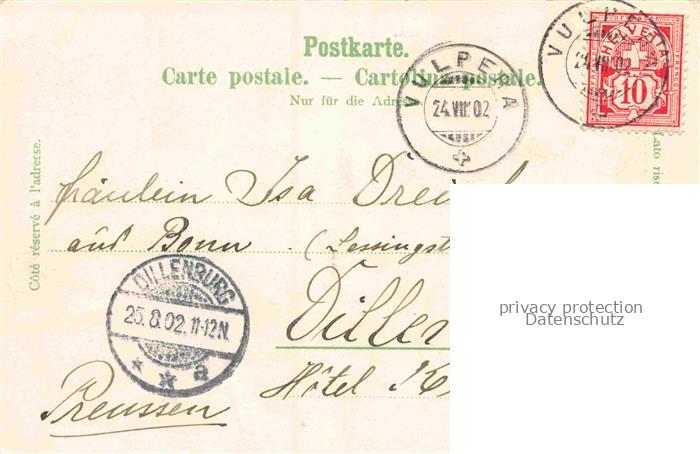 Postkarte.
Carte postale. — Cartolina postale.
Nur für die Adre
VULPERA
24.VIII.02
VULPERA
HELVETIA
10
Côté réservé à l'adresse.
Lato rise
Fräulein Isa
aus Bonn (Lessingst
Dillen
Hôtel
Preussen
DILLENBURG
25.8.02.11-12N.
* * a
privacy protection
Datenschutz